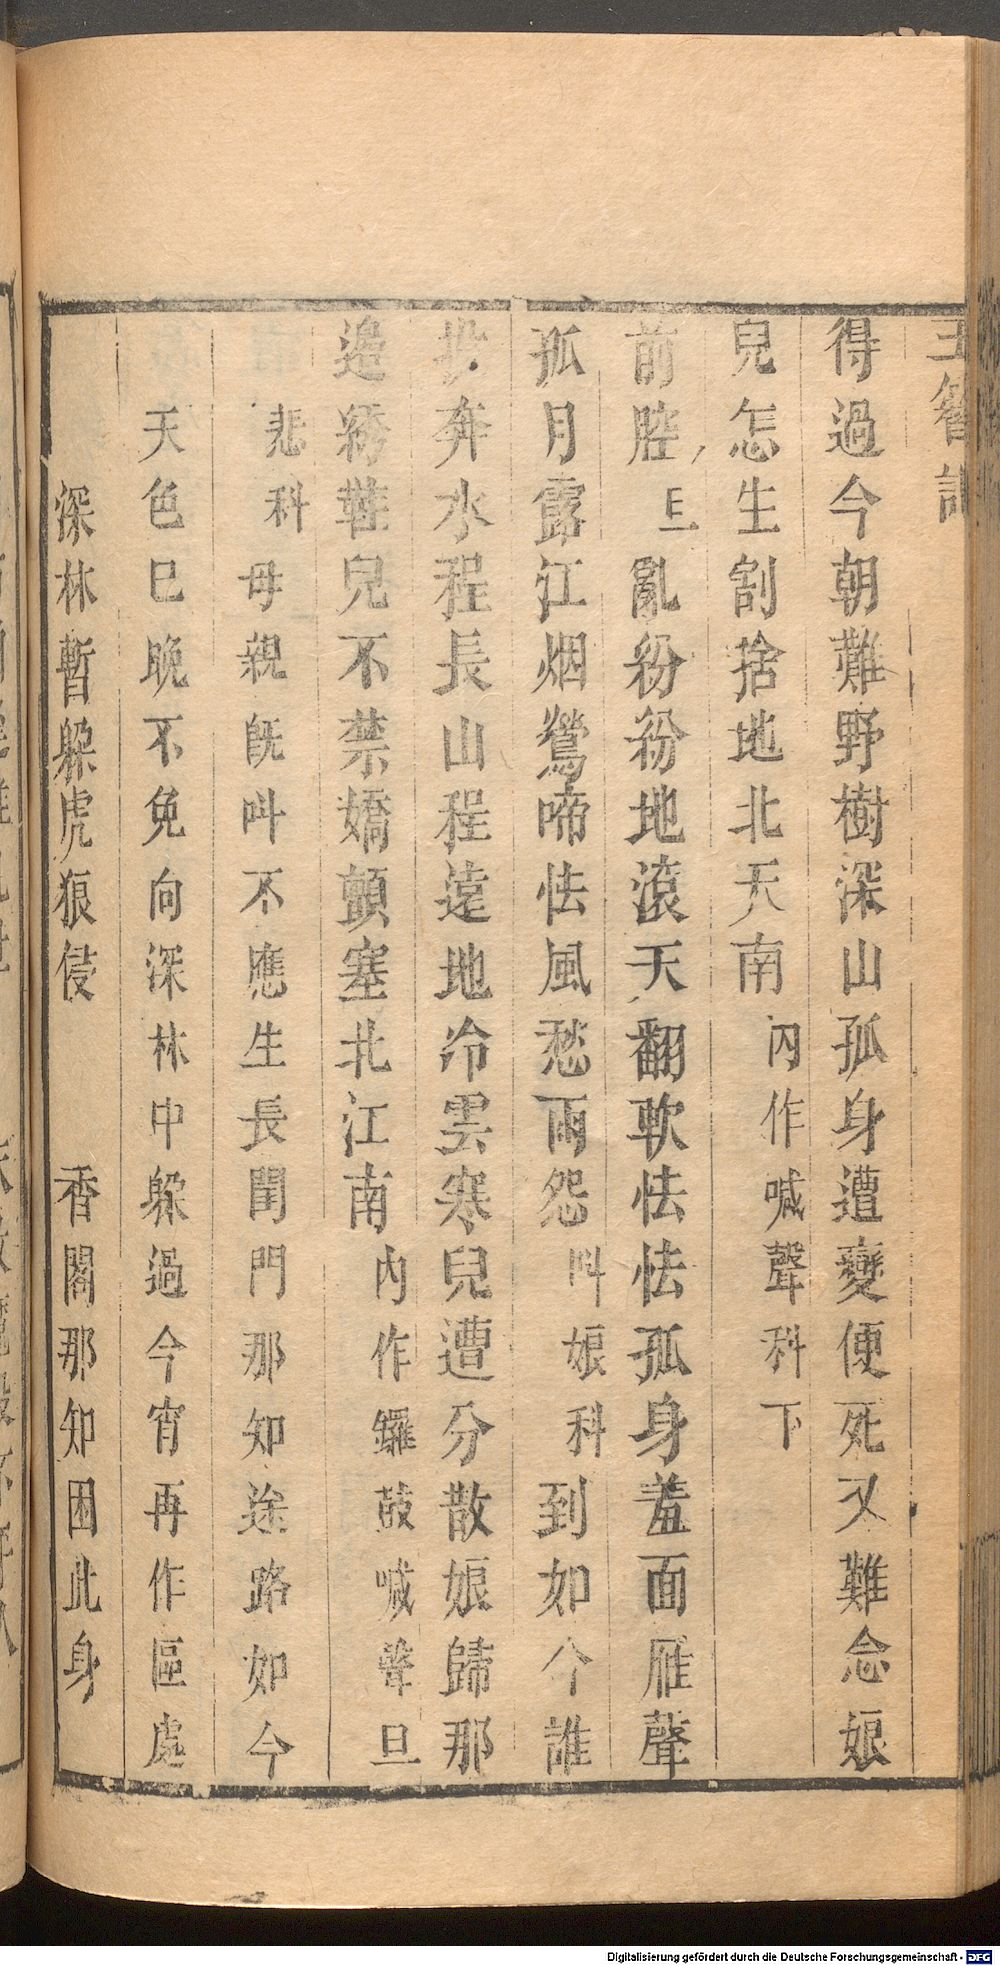 玉簪記
得過今朝難野樹深山孤身遭變便死又難念娘
兒怎生割捨地北天南內作喊聲科下
前腔旦亂紛紛地滾天翻軟怯怯孤身羞面雁聲
孤月露江烟鶯啼怯風愁雨怨叫娘科到如今誰
投奔水程長山程遠地冷雲寒兒遭分散娘歸那
邉綉鞋兒不禁嬌顫塞北江南內作鑼鼓喊聲旦
悲科母親旣叫不應生長閨門那知途路如今
天色巳晚不免向深林中躲過今宵再作區處
深林暫躲虎狼侵　香閣那知困此身
Digitalisierung gefördert durch die Deutsche Forschungsgemeinschaft - DFG